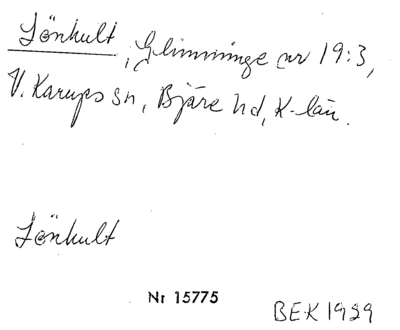 Lönhult, Glimminge nr 19:3,
V. Karups sn, Bjäre hd, K-län.
Lönhult
Nr 15775
BEK 1929